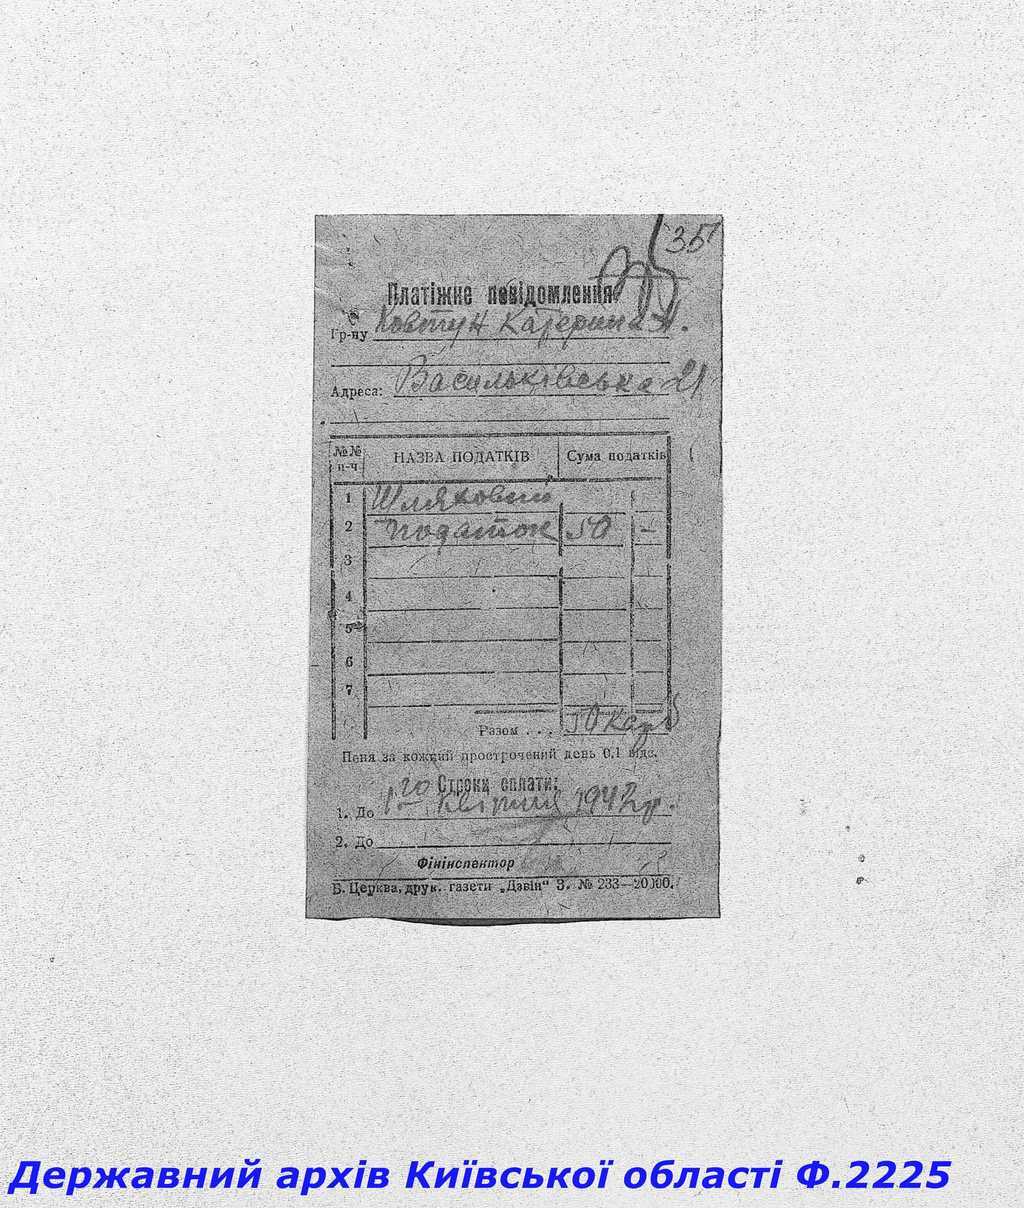 35
Платіжне повідомлення
Гр-ну Ковтун Катерина
Адреса: Васильківська 21
№№ п-ч НАЗВА ПОДАТКІВ Сума податків
1 Шляховий
2 податок 50 —
3
4
5
6
7
Разом . . . 50 карб
Пеня за кожний прострочений день 0,1 відс.
Строки сплати:
1. До 1го квітня 1942р.
2. До
Фінінспектор
Б. Церква, друк. газети „Дзвін“ З. № 233—20000.
Державний архів Київської області Ф.2225